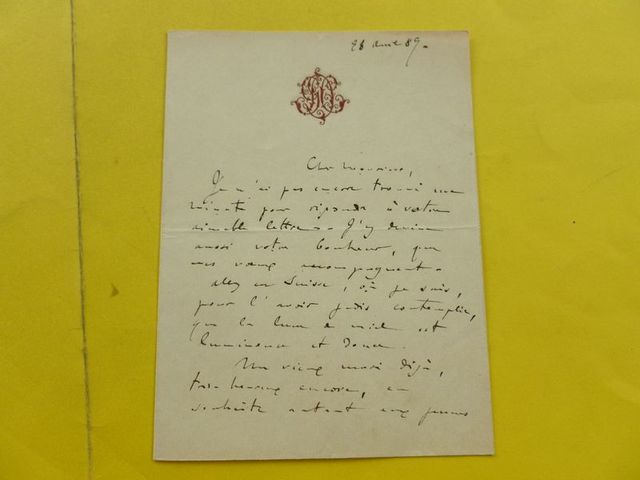 28 avril 89.
Cher Monsieur,
Je n'ai pas encore trouvé une
minute pour répondre à votre
aimable lettre. J'y devine
aussi votre bonheur, que
mes vœux accompagnent.
allez en Suisse, où je sais,
pour l'avoir jadis contemplée,
que la lune de miel est
lumineuse et douce.
Un vieux mari déjà,
très heureux encore, en
souhaite autant aux jeunes